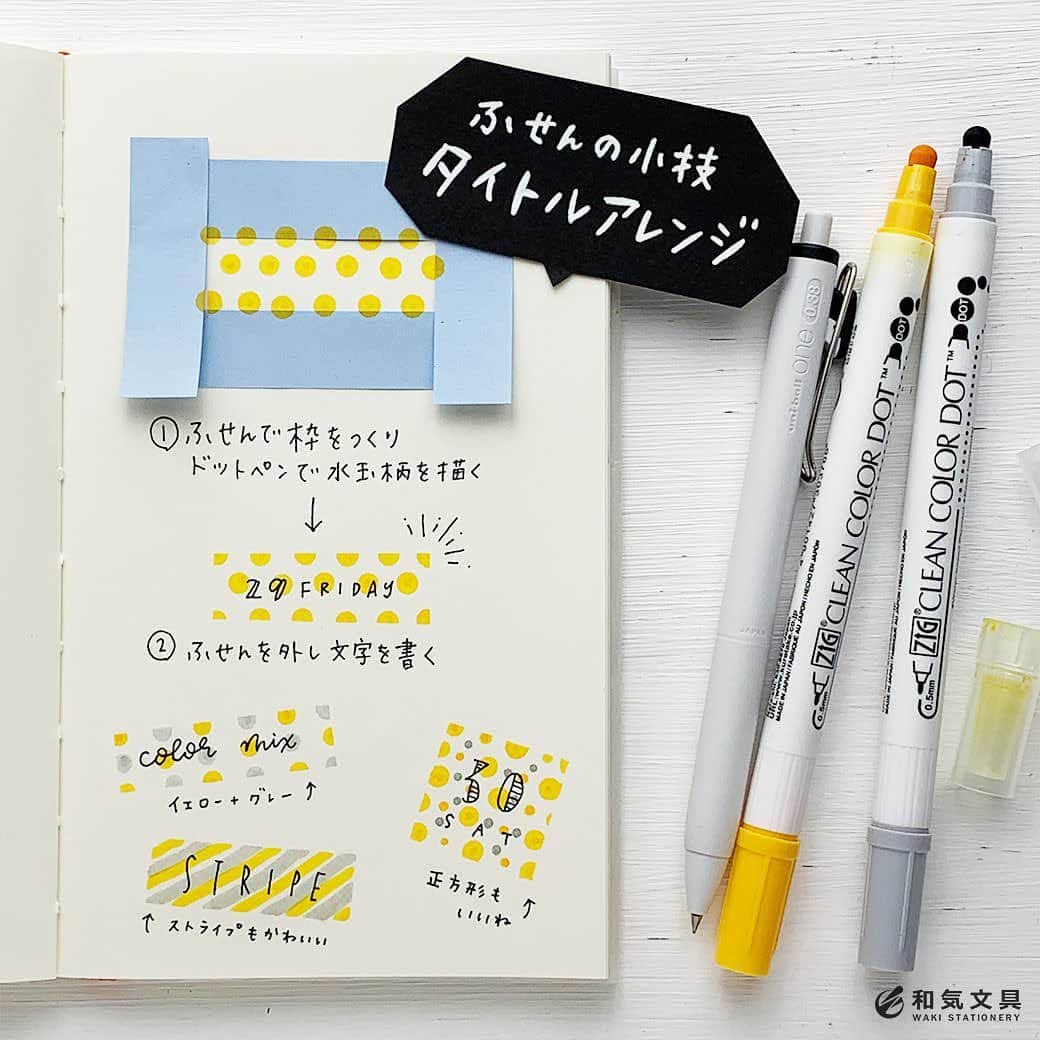 ふせんの小技
タイトルアレンジ
①ふせんで枠をつくり
ドットペンで水玉柄を描く
↓
29 FRIDAY
②ふせんを外し文字を書く
color mix
イエロー+グレー↑
30
SAT
正方形も
いいね↑
STRIPE
↑ストライプもかわいい
uni-ball one 0.38
JAPAN
DOT
ZIG CLEAN COLOR DOT™
0.5mm
MADE IN JAPAN / FABRIQUÉ AU JAPON / HECHO EN JAPÓN
DOT
ZIG® CLEAN COLOR DOT™
0.5mm
和気文具
WAKI STATIONERY